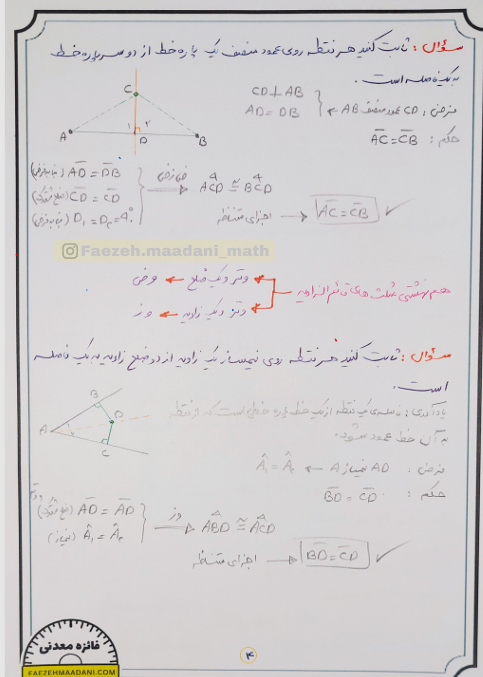 سؤال: ثابت کنید هر نقطه روی عمود منصف یک پاره خط از دو سر پاره خط
به یک فاصله است.
C
A
B
D
۱ ۲
CD ⊥ AB
AD = DB
فرض: CD عمود منصف AB
حکم: AC = CB
AD = DB (بنا به فرض)
CD = CD (ضلع مشترک)
D₁ = D₂ = 90° (بنا به فرض)
ض ز ض
ACD ≅ BCD
اجزای متناظر
AC = CB
Faezeh.maadani_math
هم نهشتی مثلث های قائم الزاویه
وتر و یک ضلع → وض
وتر و یک زاویه → وز
سؤال: ثابت کنید هر نقطه روی نیمساز یک زاویه از دو ضلع زاویه به یک فاصله
است.
B
A
D
C
یادآوری: فاصله ی یک نقطه از یک خط پاره خطی است که از نقطه
به آن خط عمود شود.
فرض: AD نیمساز A → Â₁ = Â₂
حکم: BD = CD
AD = AD (ضلع مشترک) وتر
Â₁ = Â₂ (نیمساز)
وز
ABD ≅ ACD
اجزای متناظر
BD = CD
فائزه معدنی
FAEZEHMAADANI.COM
۴